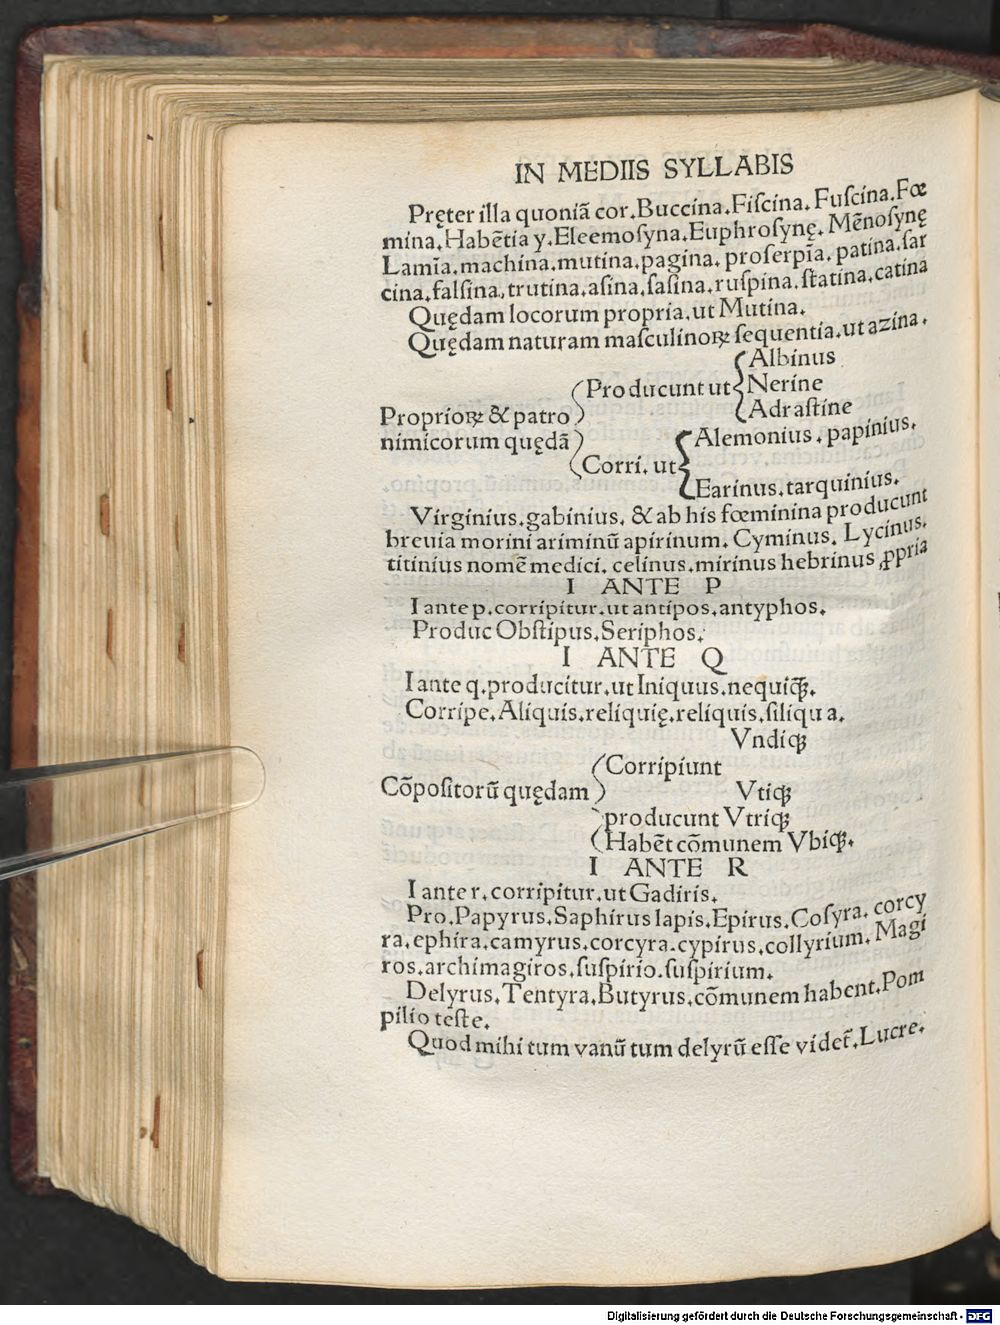 IN MEDIIS SYLLABIS
Pręter illa quoniā cor.Buccina.Fiſcina.Fuſcina.Fœ
mina.Habētia y.Eleemoſyna.Euphroſynę.Mēnoſynę
Lamīa.machina.mutina.pagina.proſerpīa.patina.ſar
cina.falſina.trutina.aſina.ſaſina.ruſpina.ſtatina.catina
Quędam locorum propria.ut Mutina.
Quędam naturam maſculinoꝝ ſequentia.ut azina.
Proprioꝝ & patro
nimicorum quędā
Producunt ut
Albinus
Nerine
Adraſtine
Corri.ut
Alemonius.papinius.
Earinus.tarquinius.
Virginius.gabinius. & ab his fœminina producunt
breuia morini ariminū apirinum. Cyminus. Lycinus.
titinius nomē medici. celinus.mirinus hebrinus ꝓpria
I ANTE P
I ante p.corripitur.ut antipos.antyphos.
Produc Obſtipus.Seriphos.
I ANTE Q
I ante q.producitur.ut Iniquus.nequiqꝫ.
Corripe.Aliquis.reliquię.reliquis.ſiliqua.
Vndiqꝫ
Cōpoſitorū quędam
Corripiunt
Vtiqꝫ
producunt Vtriqꝫ
Habēt cōmunem Vbiqꝫ.
I ANTE R
I ante r.corripitur.ut Gadiris.
Pro.Papyrus.Saphirus lapis.Epirus.Coſyra.corcy
ra.ephira.camyrus.corcyra.cypirus.collyrium.Magi
ros.archimagiros.ſuſpirio.ſuſpirium.
Delyrus.Tentyra.Butyrus.cōmunem habent.Pom
pilio teſte.
Quod mihi tum vanū tum delyrū eſſe videt̄.Lucre.
Digitalisierung gefördert durch die Deutsche Forschungsgemeinschaft - DFG